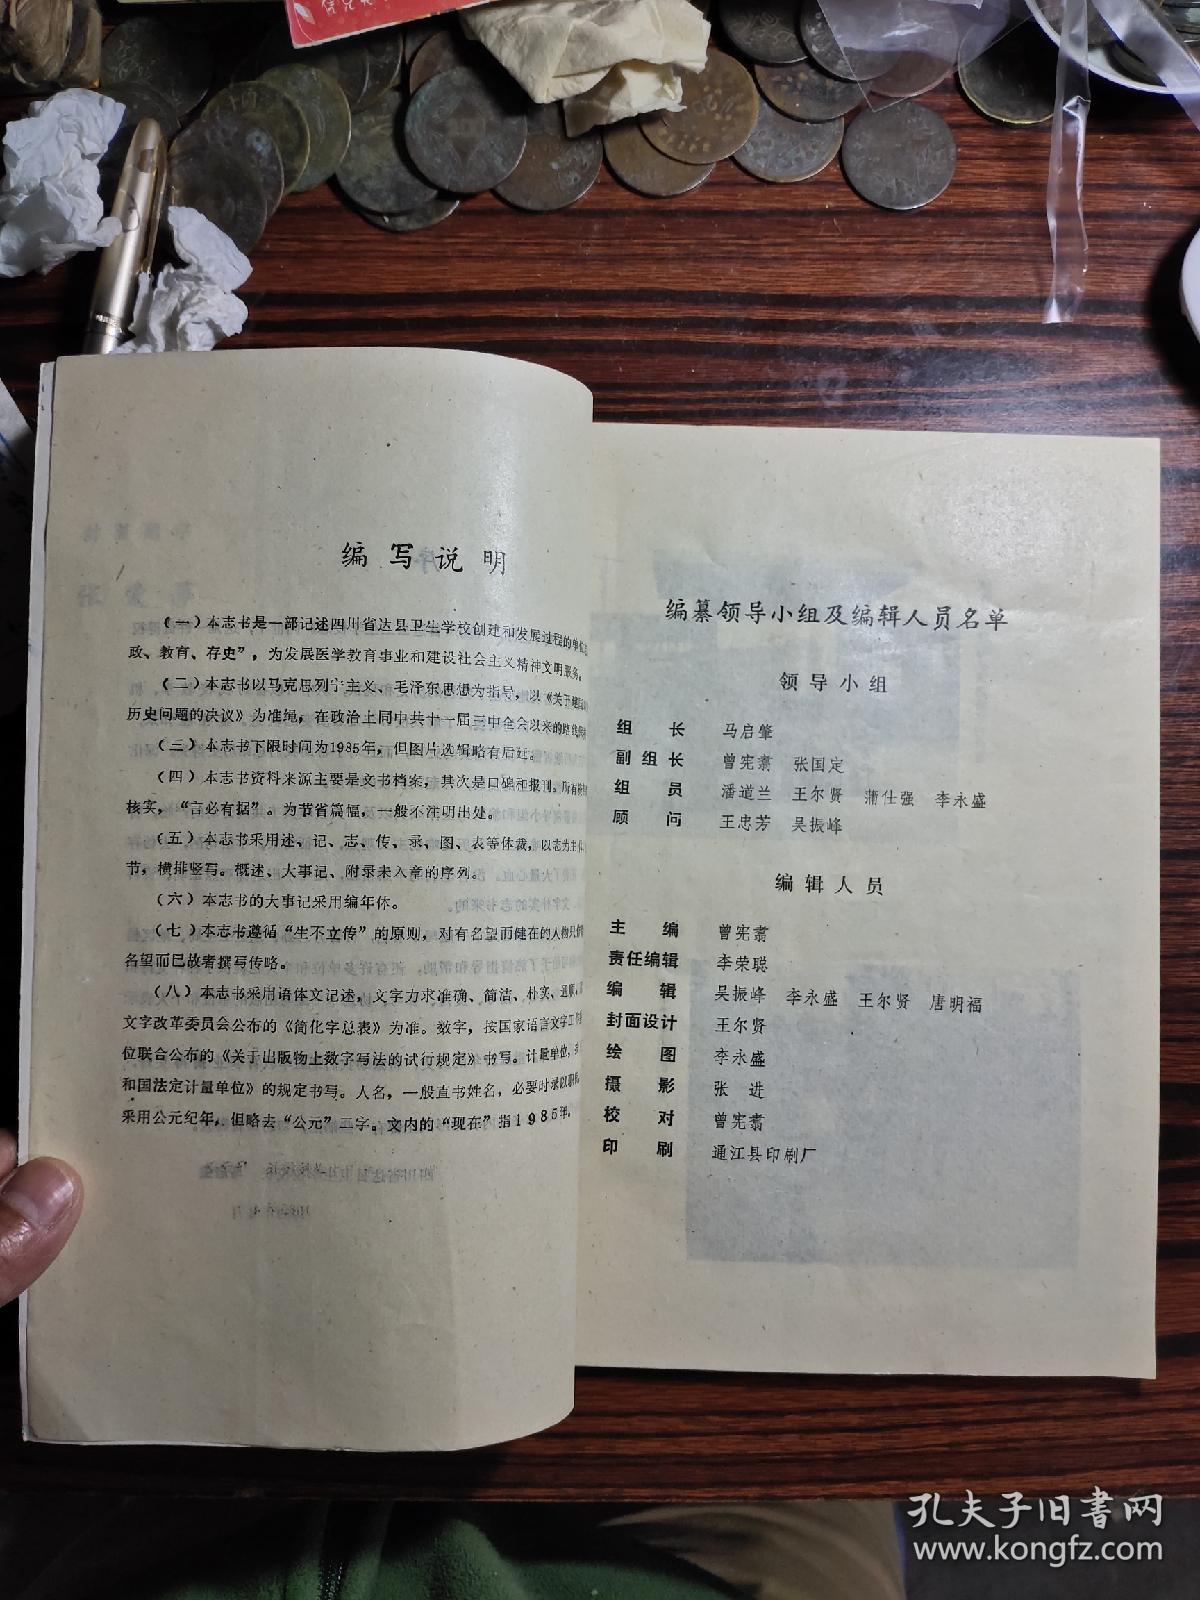 编写说明
（一）本志书是一部记述四川省达县卫生学校创建和发展过程的单位志
政、教育、存史”，为发展医学教育事业和建设社会主义精神文明服务。
（二）本志书以马克思列宁主义、毛泽东思想为指导，以《关于建国以
历史问题的决议》为准绳，在政治上同中共十一届三中全会以来的路线
（三）本志书下限时间为1985年，但图片选辑略有后延。
（四）本志书资料来源主要是文书档案，其次是口碑和报刊。所有
核实，“言必有据”。为节省篇幅，一般不注明出处。
（五）本志书采用述、记、志、传、录、图、表等体裁，以志为主体
节，横排竖写。概述、大事记、附录未入章的序列。
（六）本志书的大事记采用编年体。
（七）本志书遵循“生不立传”的原则，对有名望而健在的人物只
名望而已故者撰写传略。
（八）本志书采用语体文记述，文字力求准确、简洁、朴实、通顺，
文字改革委员会公布的《简化字总表》为准。数字，按国家语言文字工作
位联合公布的《关于出版物上数字写法的试行规定》书写。计量单位，
和国法定计量单位》的规定书写。人名，一般直书姓名，必要时录以职
采用公元纪年，但略去“公元”二字。文内的“现在”指1985年，
编纂领导小组及编辑人员名单
领导小组
组长 马启肇
副组长 曾宪翥 张国定
组员 潘道兰 王尔贤 蒲仕强 李永盛
顾问 王忠芳 吴振峰
编辑人员
主编 曾宪翥
责任编辑 李荣聪
编辑 吴振峰 李永盛 王尔贤 唐明福
封面设计 王尔贤
绘图 李永盛
摄影 张进
校对 曾宪翥
印刷 通江县印刷厂
孔夫子旧书网
www.kongfz.com